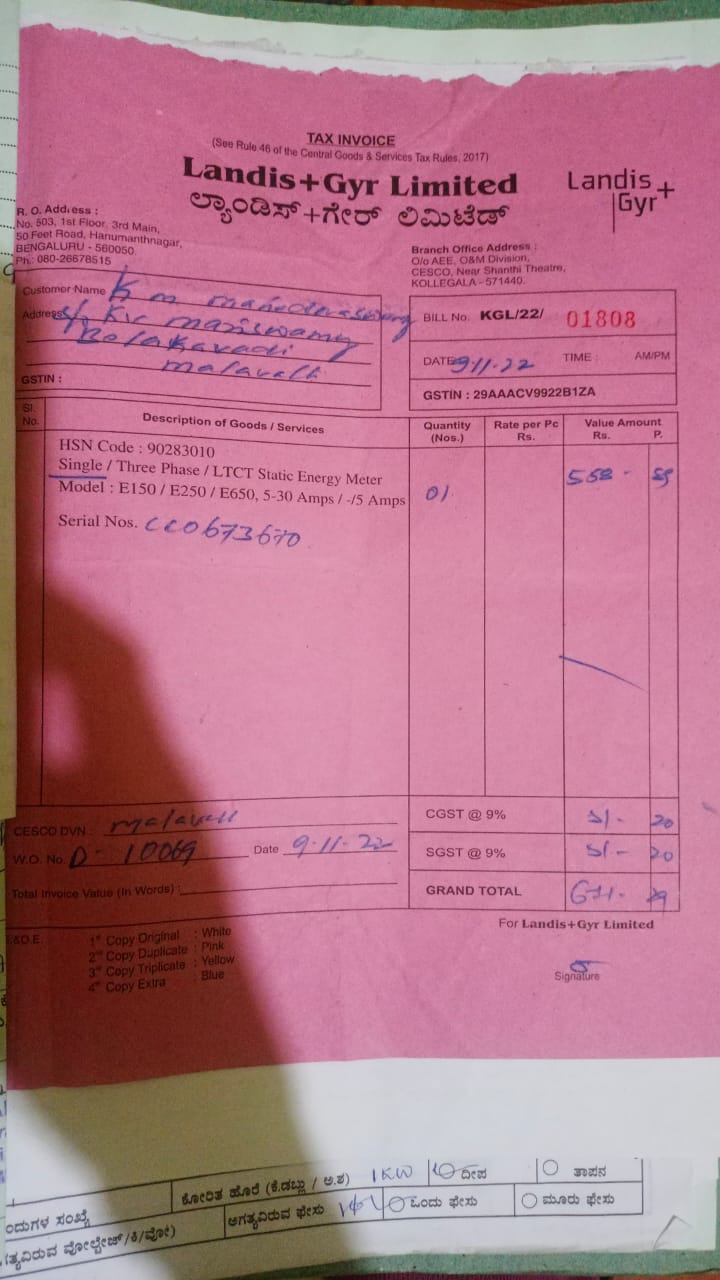 TAX INVOICE
(See Rule 46 of the Central Goods & Services Tax Rules, 2017)
Landis+Gyr Limited
ಲ್ಯಾಂಡಿಸ್+ಗೇರ್ ಲಿಮಿಟೆಡ್
Landis+
Gyr
R. O. Address :
No. 503, 1st Floor, 3rd Main,
50 Feet Road, Hanumanthnagar,
BENGALURU - 560050.
Ph.: 080-26678515
Branch Office Address :
O/o AEE, O&M Division,
CESCO, Near Shanthi Theatre,
KOLLEGALA - 571440.
Customer Name K m
Address S/o Kv mariswamy
Belakavadi
malavalli
GSTIN :
BILL No. KGL/22/ 01808
DATE 9.11.22 TIME : AM/PM
GSTIN : 29AAACV9922B1ZA
Sl. No. Description of Goods / Services Quantity (Nos.) Rate per Pc Rs. Value Amount Rs. P.
HSN Code : 90283010
Single / Three Phase / LTCT Static Energy Meter 568 -
Model : E150 / E250 / E650, 5-30 Amps / -/5 Amps 01
Serial Nos. CC0673670
CESCO DVN : malavalli
W.O. No. D - 10069 Date 9.11.22
Total Invoice Value (In Words) :
CGST @ 9% 51 - 20
SGST @ 9% 51 - 20
GRAND TOTAL 671 -
E&O.E.
1st Copy Original : White
2nd Copy Duplicate : Pink
3rd Copy Triplicate : Yellow
4th Copy Extra : Blue
For Landis+Gyr Limited
Signature
ಕೋರಿತ ಹೊರೆ (ಕೆ.ಡಬ್ಲ್ಯು / ಅ.ಶ) 1KW ದೀಪ ತಾಪನ
ಂದುಗಳ ಸಂಖ್ಯೆ ಅಗತ್ಯವಿರುವ ಫೇಸು ಒಂದು ಫೇಸು ಮೂರು ಫೇಸು
ಗತ್ಯವಿರುವ ವೋಲ್ಟೇಜ್/ಕಿ/ವೋ)